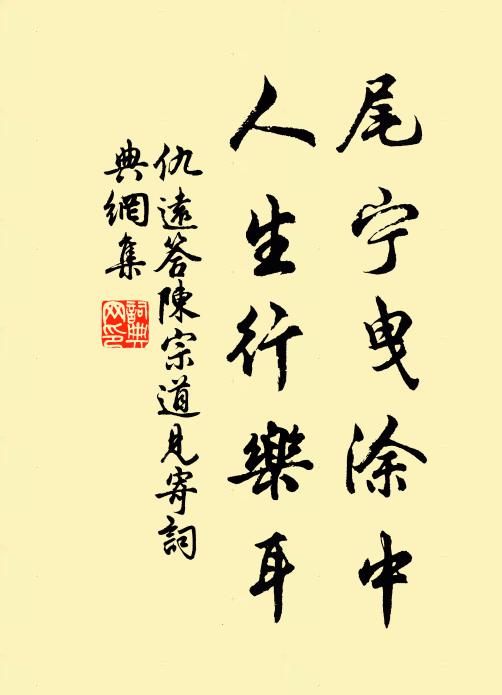 尾宁曳涂中
人生行樂耳
仇遠答陳宗道見寄詞
典網集
詞典
网印